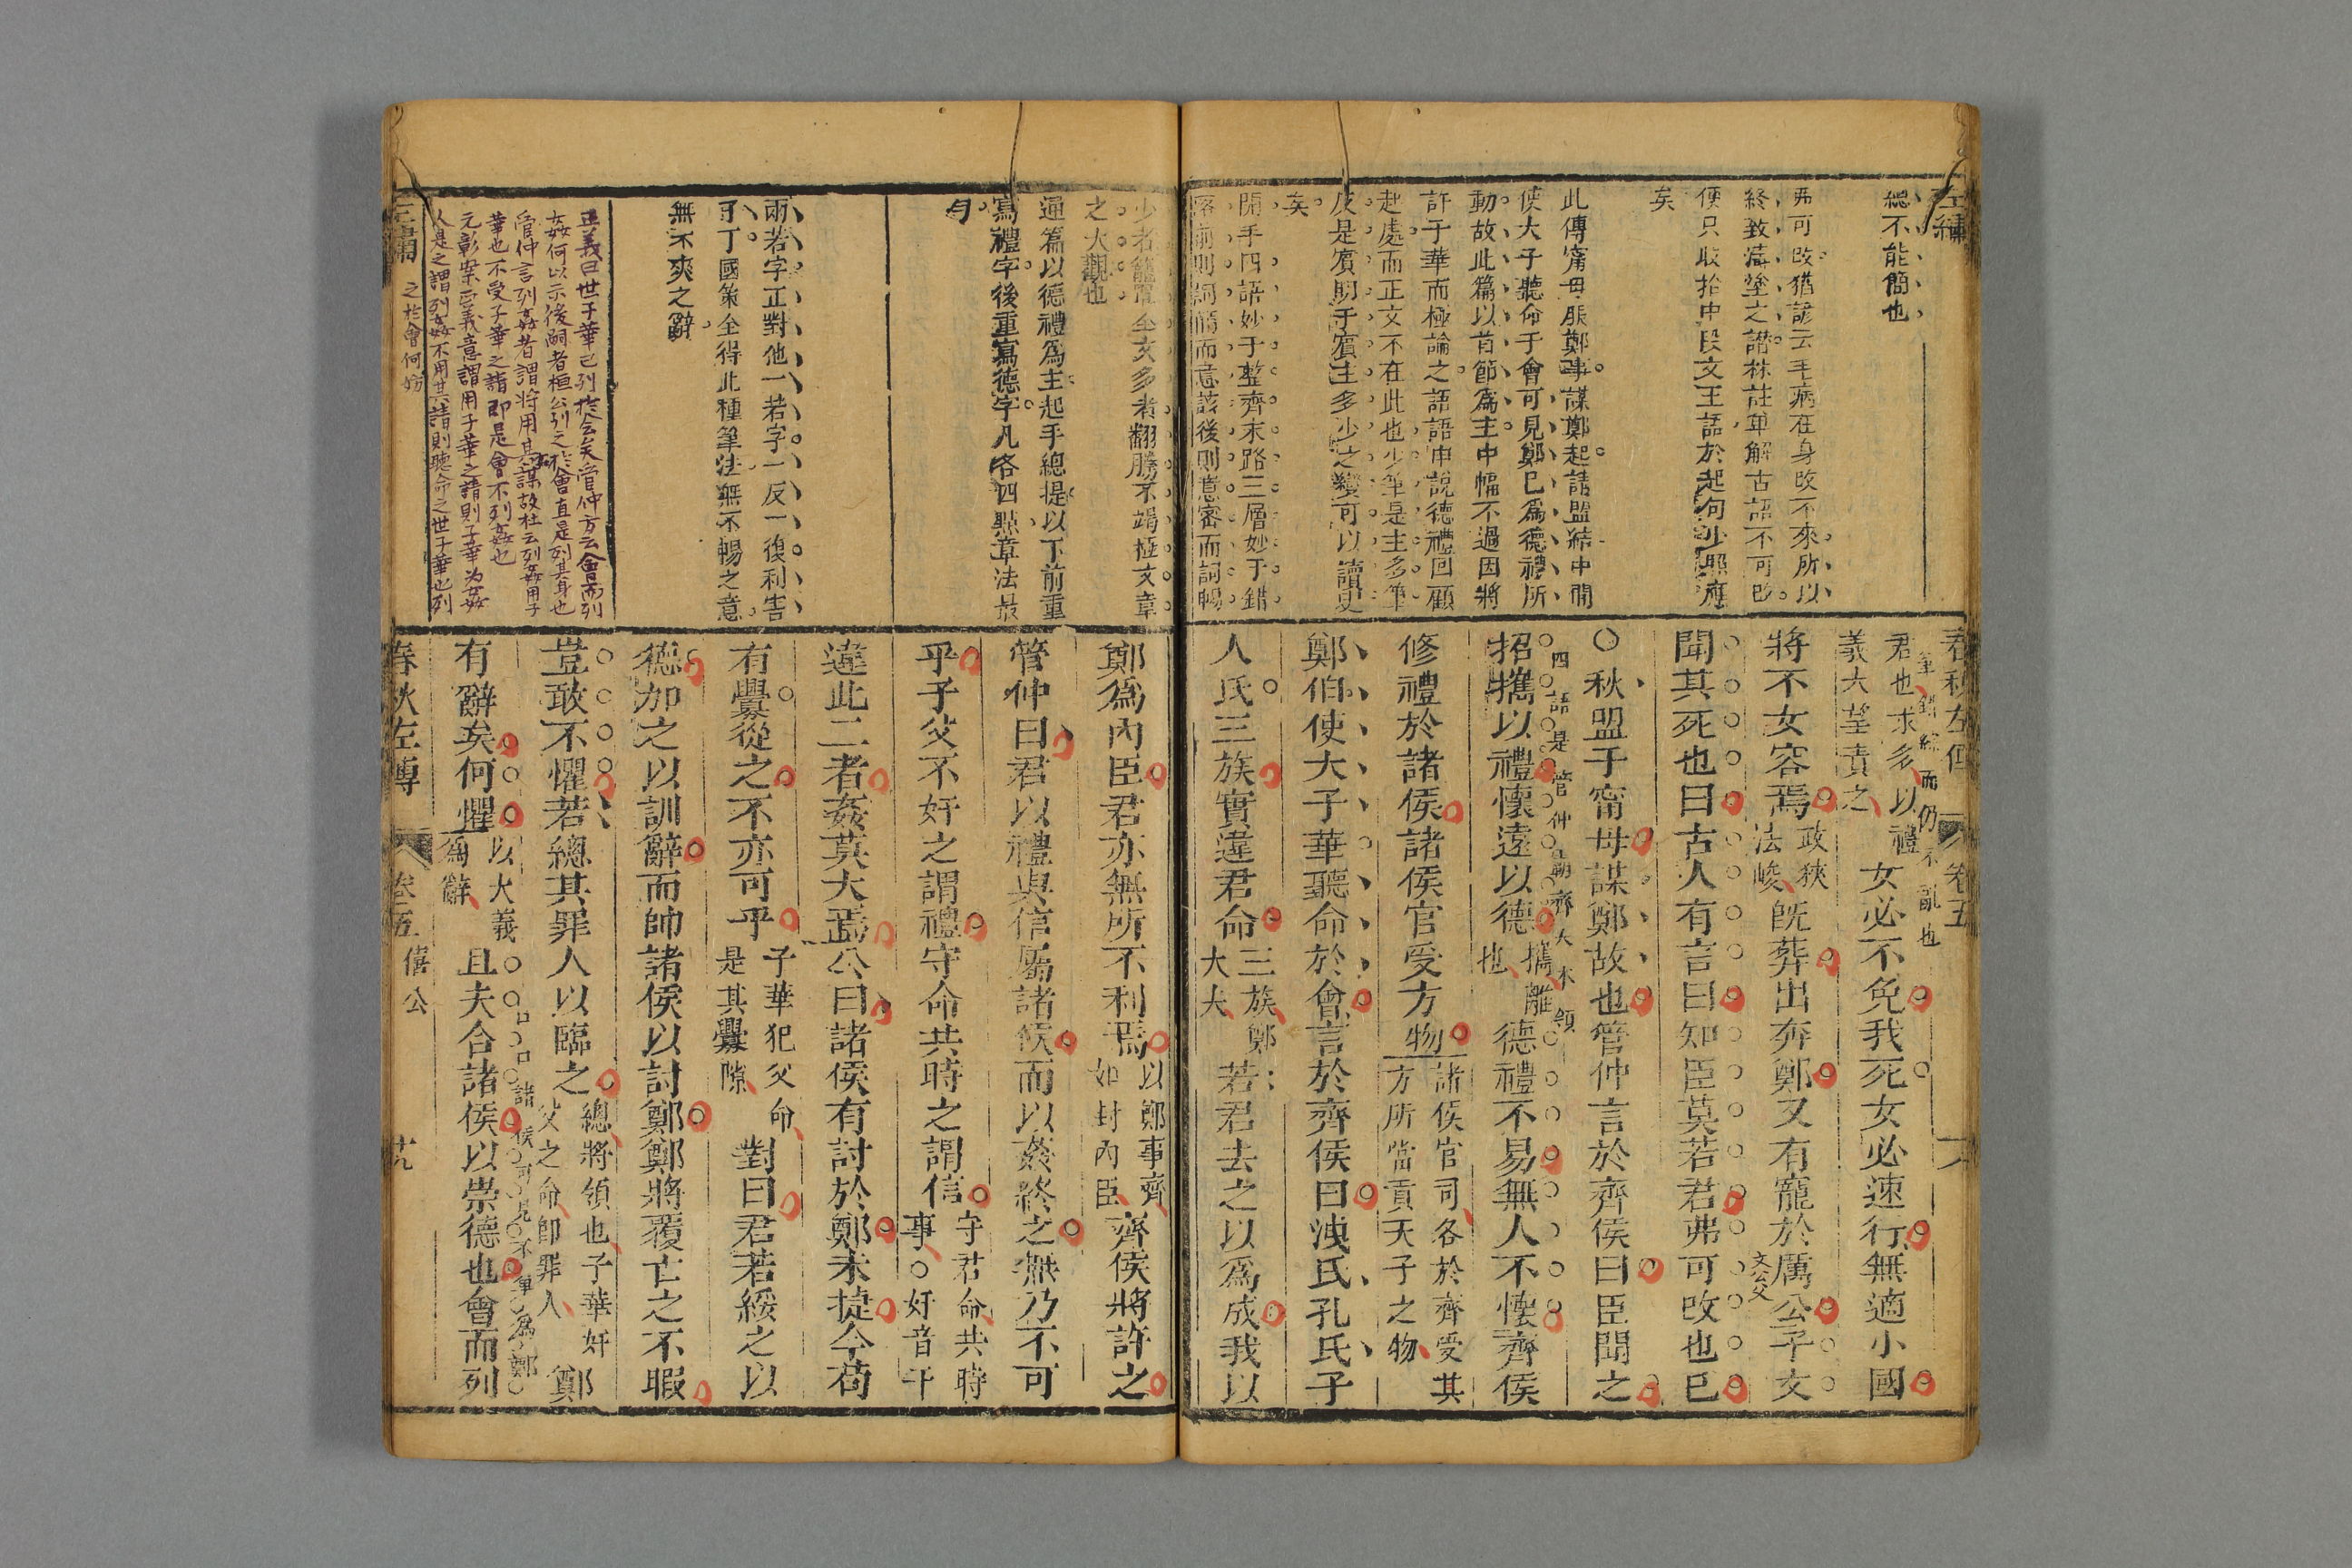 左繡
總不能簡也
弗可改猶諺云毛病在身改不來所以
終致溝壑之譖林註單解古語不可改
便只收拾中段文王語於起句少照應
矣
此傳甯母服鄭事謀鄭起請盟結中間
使大子聽命于會可見鄭已爲德禮所
動故此篇以首節爲主中幅不過因將
許子華而極論之語語申說德禮回顧
起處而正文不在此也少筆是主多筆
反是賓明于賓主多少之變可以讀史
矣
開手四語妙于整齊末路三層妙于錯
落前則詞簡而意該後則意密而詞暢
春秋左傳 卷五
君也求多以禮
義大望責之
筆錯綜而仍不亂也
女必不免我死女必速行無適小國
將不女容焉
政狹
法峻
既葬出奔鄭又有寵於厲公子文
文公父
聞其死也曰古人有言曰知臣莫若君弗可改也已
○秋盟于甯母謀鄭故也管仲言於齊侯曰臣聞之
四語是管仲覇齊大本領
招攜以禮懷遠以德
攜離
也
德禮不易無人不懷齊侯
修禮於諸侯諸侯官受方物
諸侯官司各於齊受其
方所當貢天子之物
鄭伯使大子華聽命於會言於齊侯曰洩氏孔氏子
人氏三族實違君命
三族鄭
大夫
若君去之以爲成我以
少者籠罩全文多者翻勝不竭極文章
之大觀也
通篇以德禮爲主起手總提以下前重
寫禮字後重寫德字凡各四點章法最
勻
兩若字正對他一若字一反一復利害
了了國策全得此種筆法無不暢之意
無不爽之辭
正義曰世子華已列於会矣管仲方云會而列
姦何以示後嗣者桓公列之於會直是列其身也
管仲言列姦者謂將用其謀故杜云列姦用子
華也不受子華之請即是會不列姦也
元彰案正義意謂用子華之請則子華为姦
人是之謂列姦不用其請則聽命之世子華也列
之於會何妨
鄭爲內臣君亦無所不利焉
以鄭事齊
如封內臣
齊侯將許之
管仲曰君以禮與信屬諸侯而以姦終之無乃不可
乎子父不奸之謂禮守命共時之謂信
守君命共時
事○奸音干
違此二者姦莫大焉公曰諸侯有討於鄭未捷今苟
有釁從之不亦可乎
子華犯父命
是其釁隙
對曰君若綏之以
德加之以訓辭而帥諸侯以討鄭鄭將覆亡之不暇
豈敢不懼若總其罪人以臨之
總將領也子華奸
父之命卽罪人
鄭
有辭矣何懼
以大義
爲辭
且夫合諸侯以崇德也會而列
左繡
春秋左傳 卷五 僖公